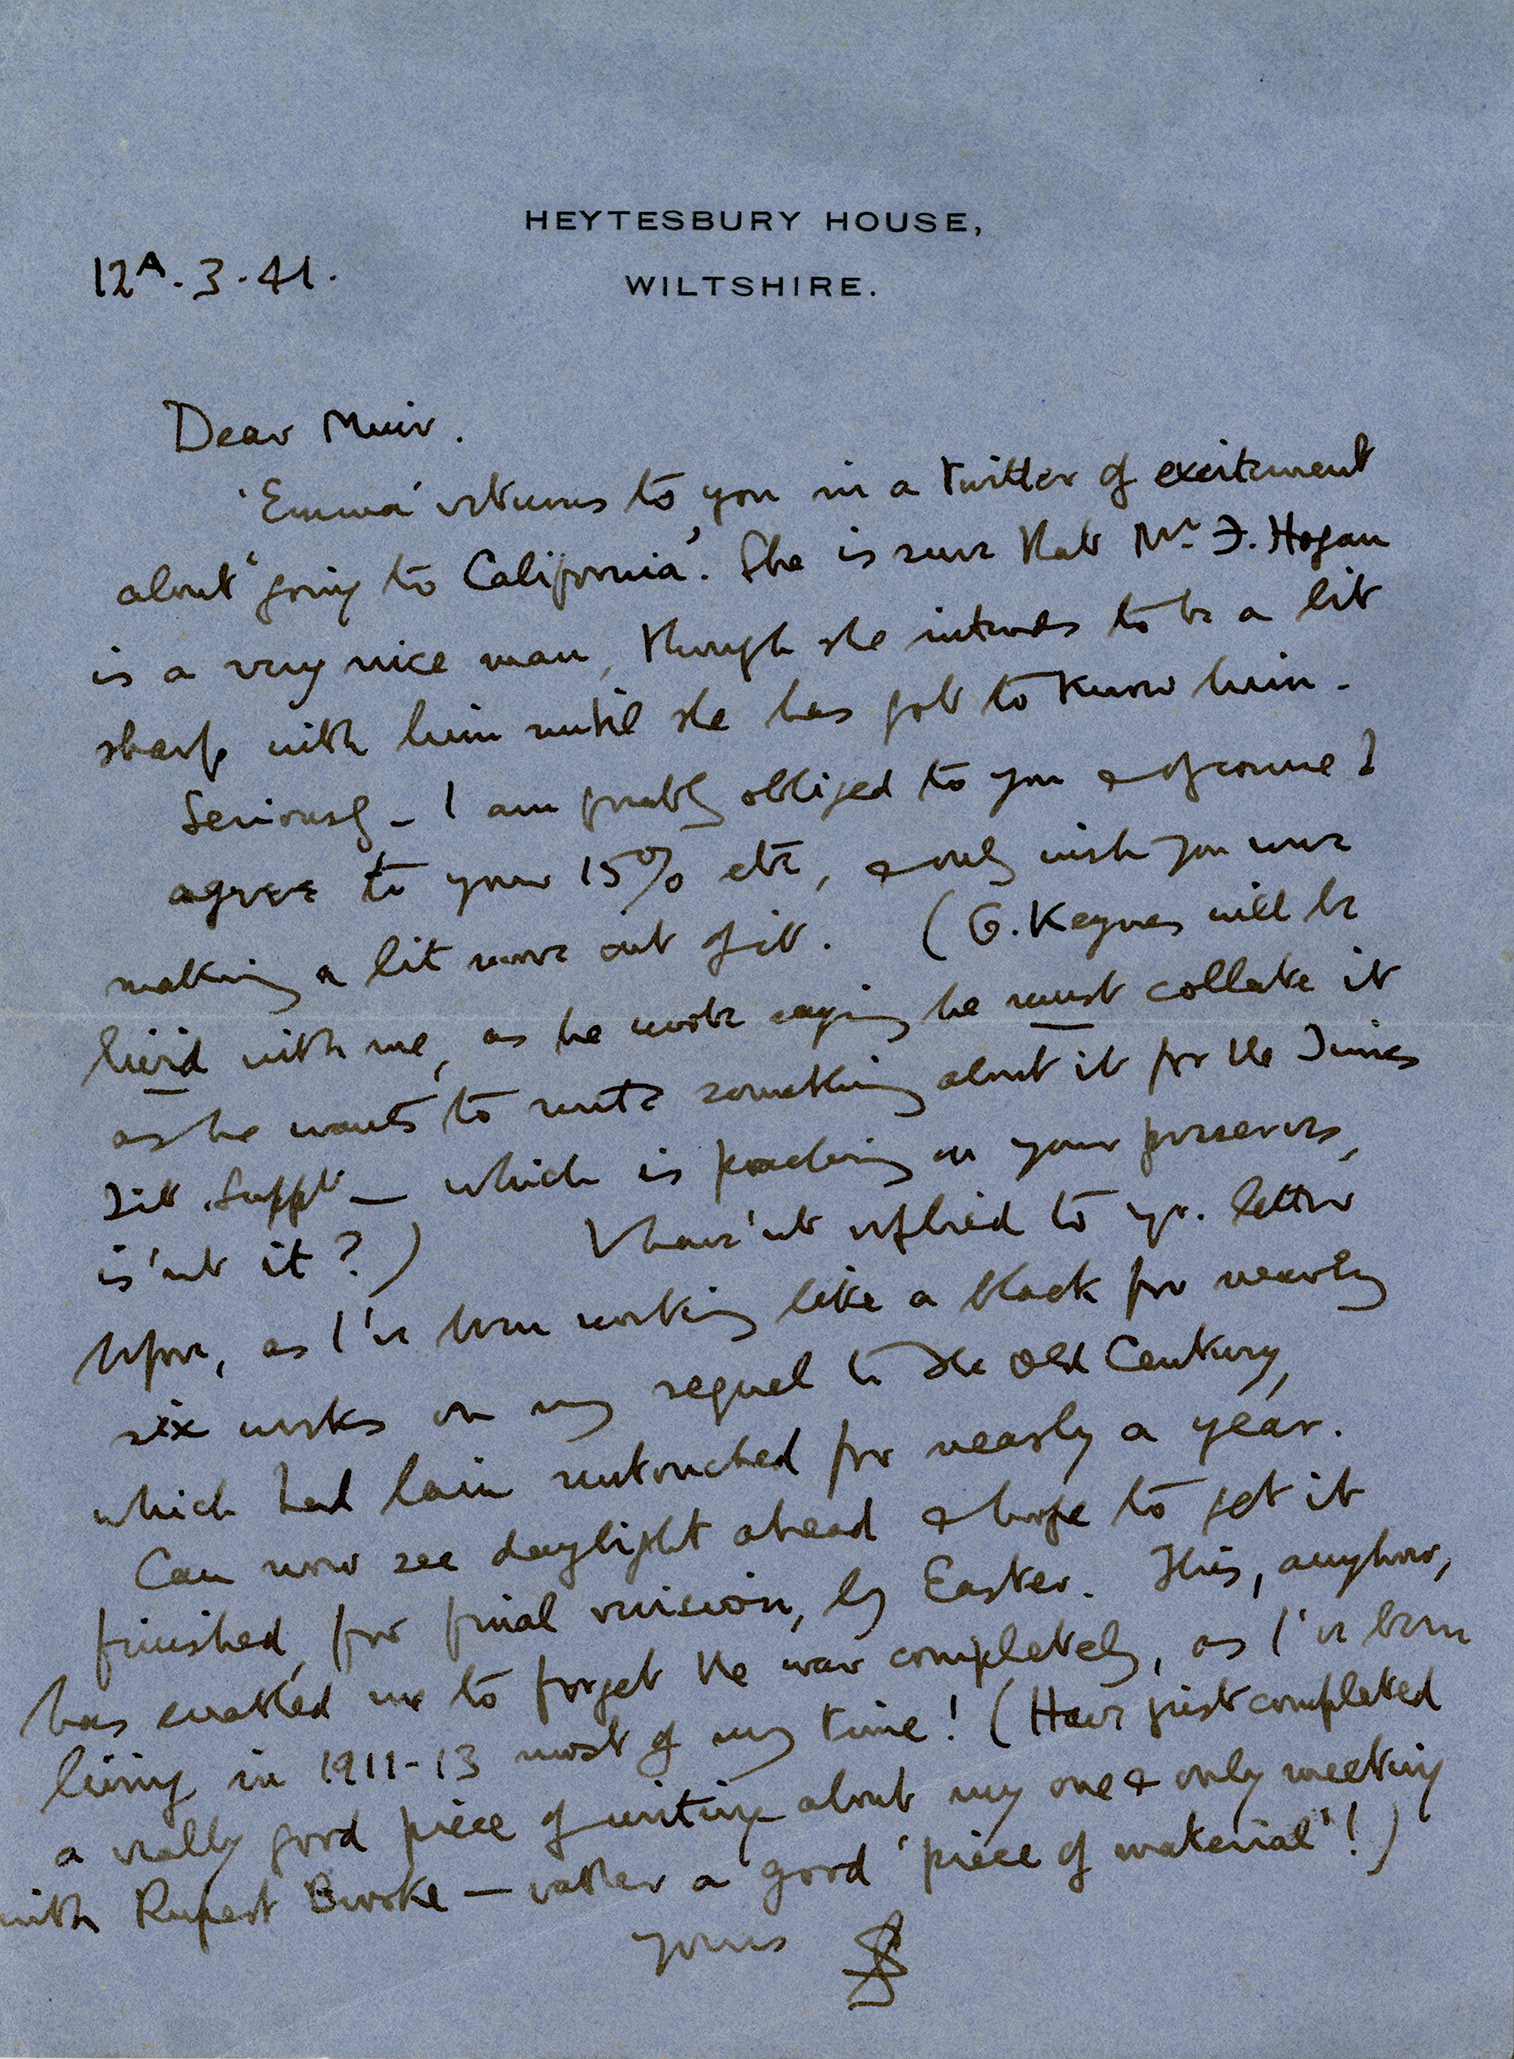 HEYTESBURY HOUSE,
12th. 3. 41. WILTSHIRE.
Dear Muir.
'Emma' returns to you in a twitter of excitement
about 'going to California'. She is sure that Mr. F. Hogan
is a very nice man, though she intends to be a bit
sharp with him until she has got to know him.
Seriously – I am greatly obliged to you & of course I
agree to your 15% etc, & only wish you were
making a bit more out of it. (G. Keynes will be
livid with me, as he wrote saying he must collate it
as he wants to write something about it for the Times
Lit. Suppt – which is poaching on your preserves,
is'nt it?) I have'nt replied to yr. letter
before, as I've been working like a black for nearly
six weeks on my sequel to The Old Century,
which had lain untouched for nearly a year.
Can now see daylight ahead & hope to get it
finished, for final revision, by Easter. This, anyhow,
has enabled me to forget the war completely, as I've been
living in 1911-13 most of my time! (Have just completed
a really good piece of writing about my one & only meeting
with Rupert Brooke – rather a good 'piece of material'!)
yours SS